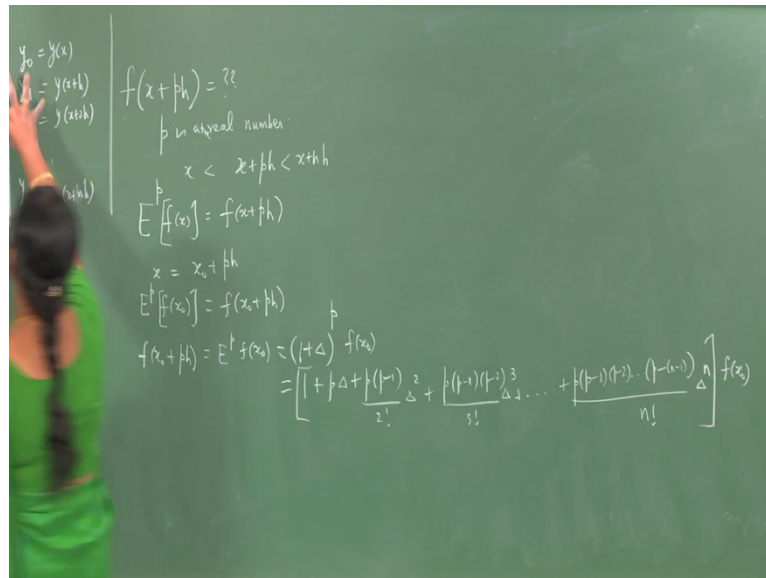 y₀ = y(x)
= y(x+h)
= y(x+2h)
f(x+ph) = ??
p is a real number.
x < x+ph < x+nh
E^p [f(x)] = f(x+ph)
x = x₀ + ph
E^p [f(x₀)] = f(x₀+ph)
f(x₀+ph) = E^p f(x₀) = (1+Δ)^p f(x₀)
= [1 + pΔ + p(p-1)/2! Δ² + p(p-1)(p-2)/3! Δ³ + .... + p(p-1)(p-2)...(p-(n-1))/n! Δ^n] f(x₀)